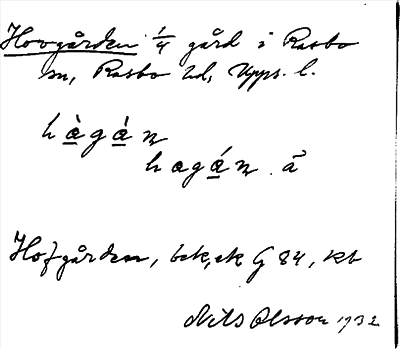 Hovgården 1/4 gård i Rasbo
sn, Rasbo hd, Upps. l.
hàgàn
hagán å
Hofgården, bek, ek G 84, kb
Nils Olsson 1932